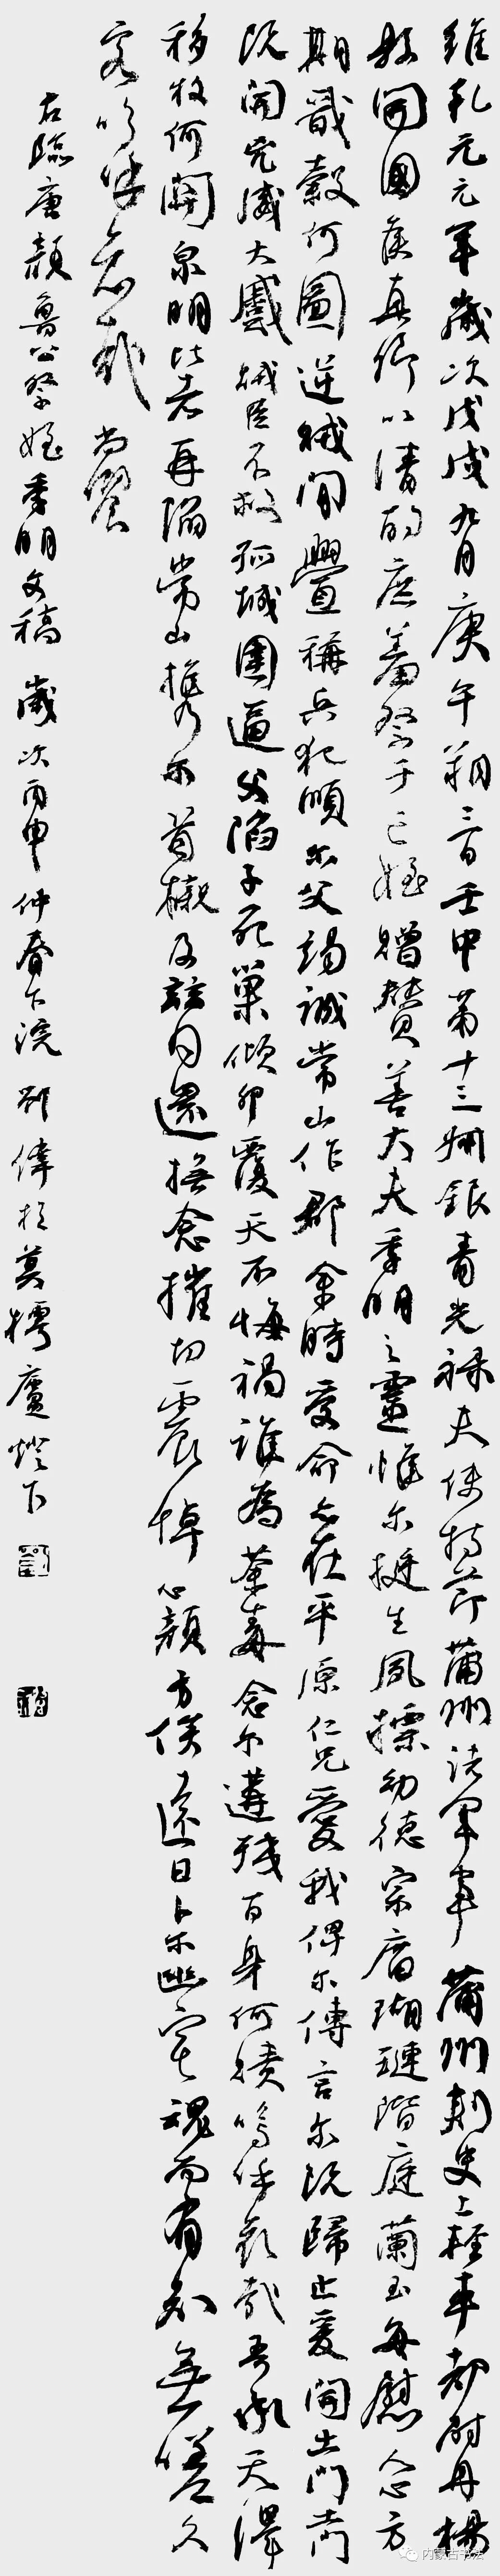 維乾元元年歲次戊戌九月庚午朔三日壬申第十三叔銀青光祿夫使持節蒲州諸軍事蒲州刺史上輕車都尉丹楊
縣開國侯真卿以清酌庶羞祭于亡姪贈贊善大夫季明之靈惟爾挺生夙標幼德宗廟瑚璉階庭蘭玉每慰人心方
期戩穀何圖逆賊閒釁稱兵犯順爾父竭誠常山作郡余時受命亦在平原仁兄愛我俾爾傳言爾既歸止爰開土門土門
既開凶威大蹙賊臣不救孤城圍逼父陷子死巢傾卵覆天不悔禍誰為荼毒念爾遘殘百身何贖嗚呼哀哉吾承天澤
移牧何關泉明比者再陷常山攜爾首櫬及茲同還撫念摧切震悼心顏方俟遠日卜爾幽宅魂而有知無嗟久
客嗚呼哀哉尚饗
右臨唐顏魯公祭姪季明文稿 歲次丙申仲春下浣 偉於 廬燈下
内蒙古书法